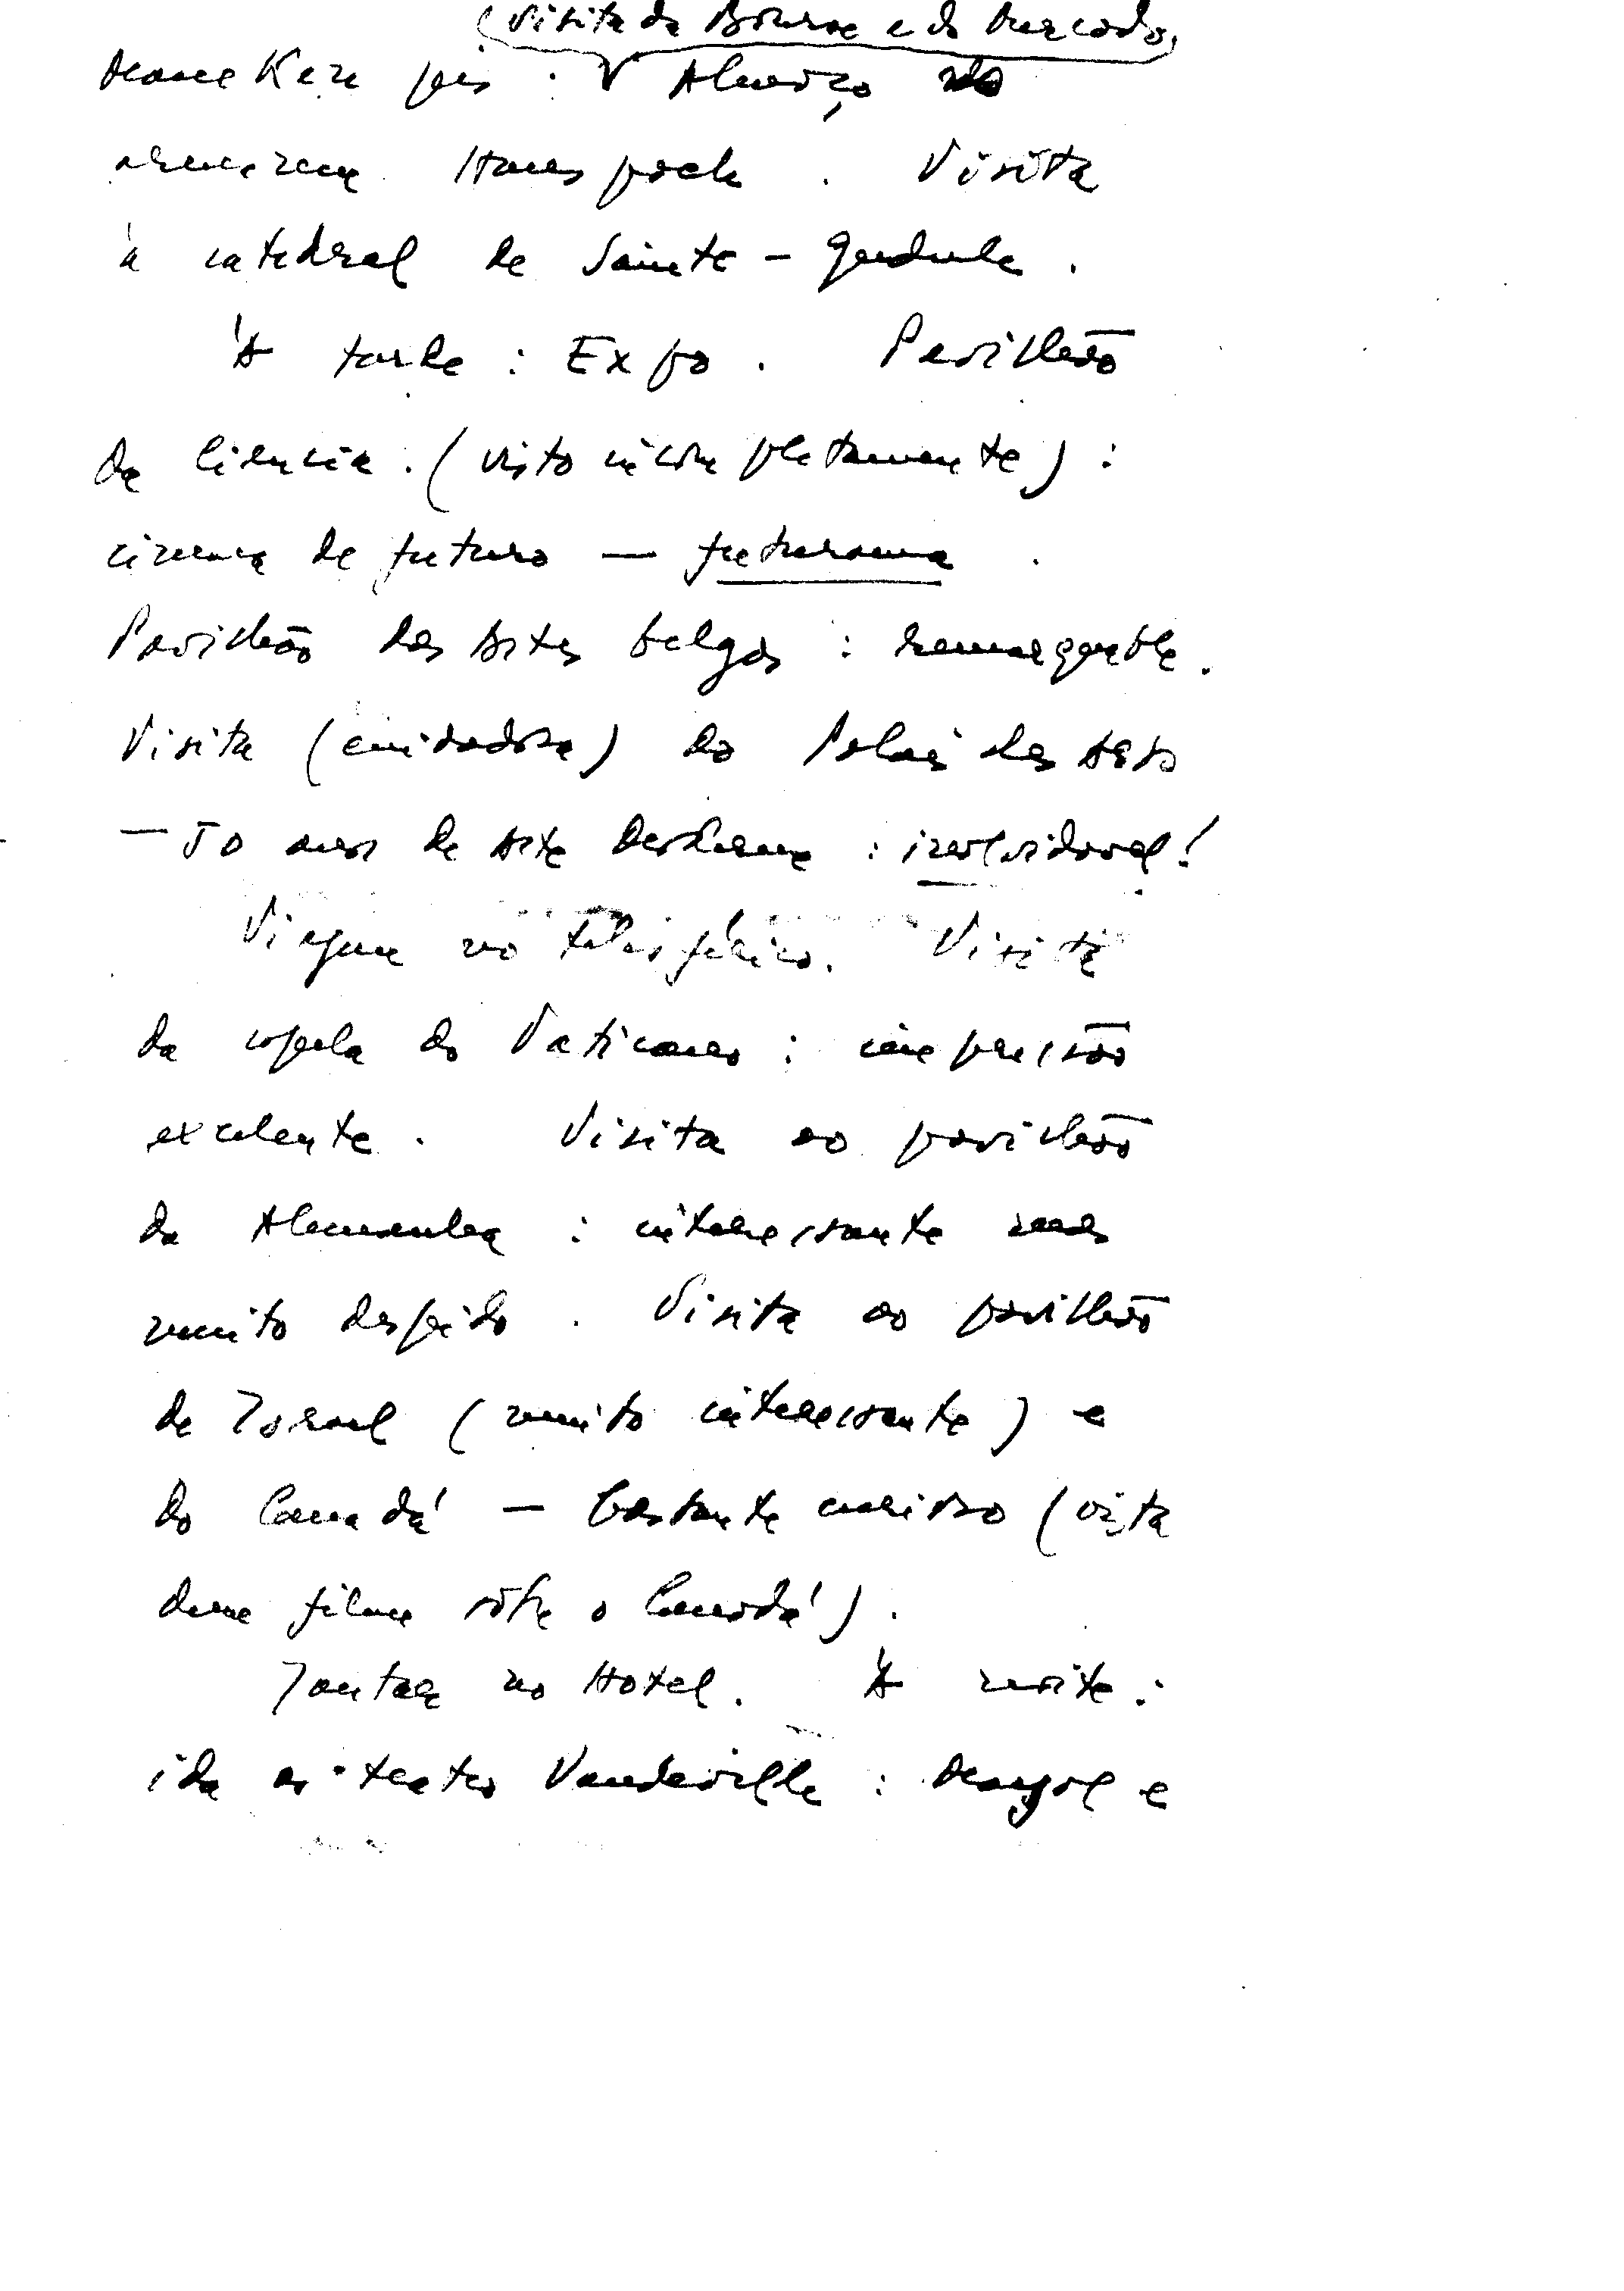 (Visita da Bourse e do Mercado)
Manneken pis. Almoço no
armazem Hans poch. Visita
à catedral de Sainte-Gudule.
À tarde: Expo. Pavilhão
da Ciencia. (visto incompletamente):
cinema de futuro — futurama.
Pavilhão das Artes belgas: remarquable.
Visita (cuidadosa) do Palais des Arts
— 50 anos de Arte Moderne: inolvidavel!
Viagem no teleférico. Visita
da capela do Vaticano: impressão
excelente. Visita ao pavilhão
da Alemanha: interessante mas
muito despido. Visita ao pavilhão
de Israel (muito interessante) e
do Canadá — bastante curioso (vista
dum filme sôbre o Canadá).
Jantar no Hotel. À noite:
ida ao teatro Vaudeville: e